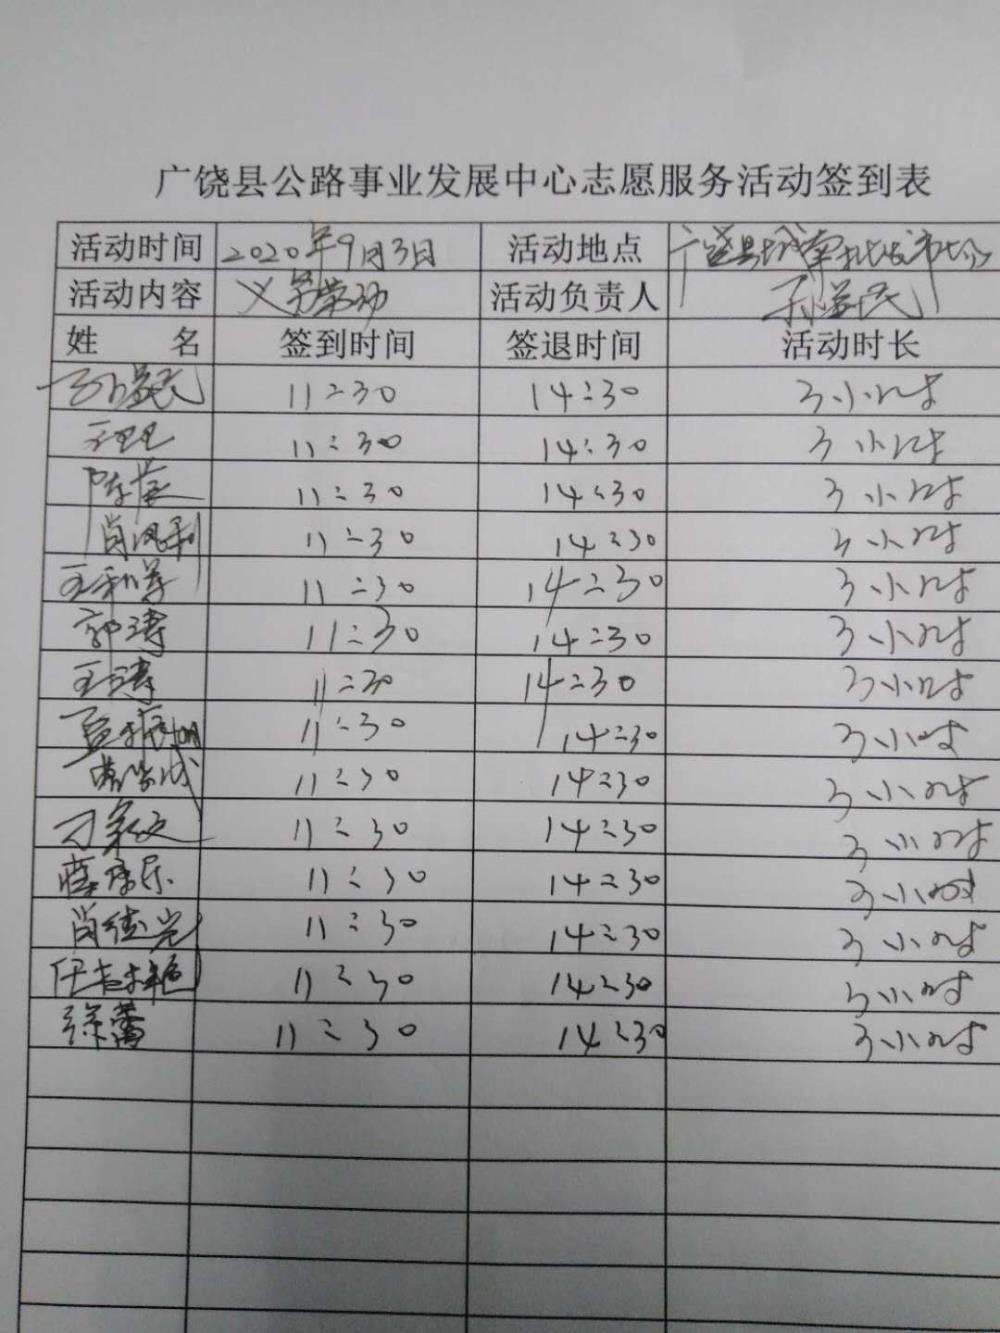 广饶县公路事业发展中心志愿服务活动签到表
活动时间 2020年9月3日 活动地点 广饶县城南批发市场
活动内容 义务劳动 活动负责人
姓 名 签到时间 签退时间 活动时长
11:30 14:30 3小时
11:30 14:30 3小时
11:30 14:30 3小时
肖凤利 11:30 14:30 3小时
11:30 14:30 3小时
郭涛 11:30 14:30 3小时
王涛 11:30 14:30 3小时
11:30 14:30 3小时
11:30 14:30 3小时
11:30 14:30 3小时
11:30 14:30 3小时
11:30 14:30 3小时
11:30 14:30 3小时
徐蕾 11:30 14:30 3小时